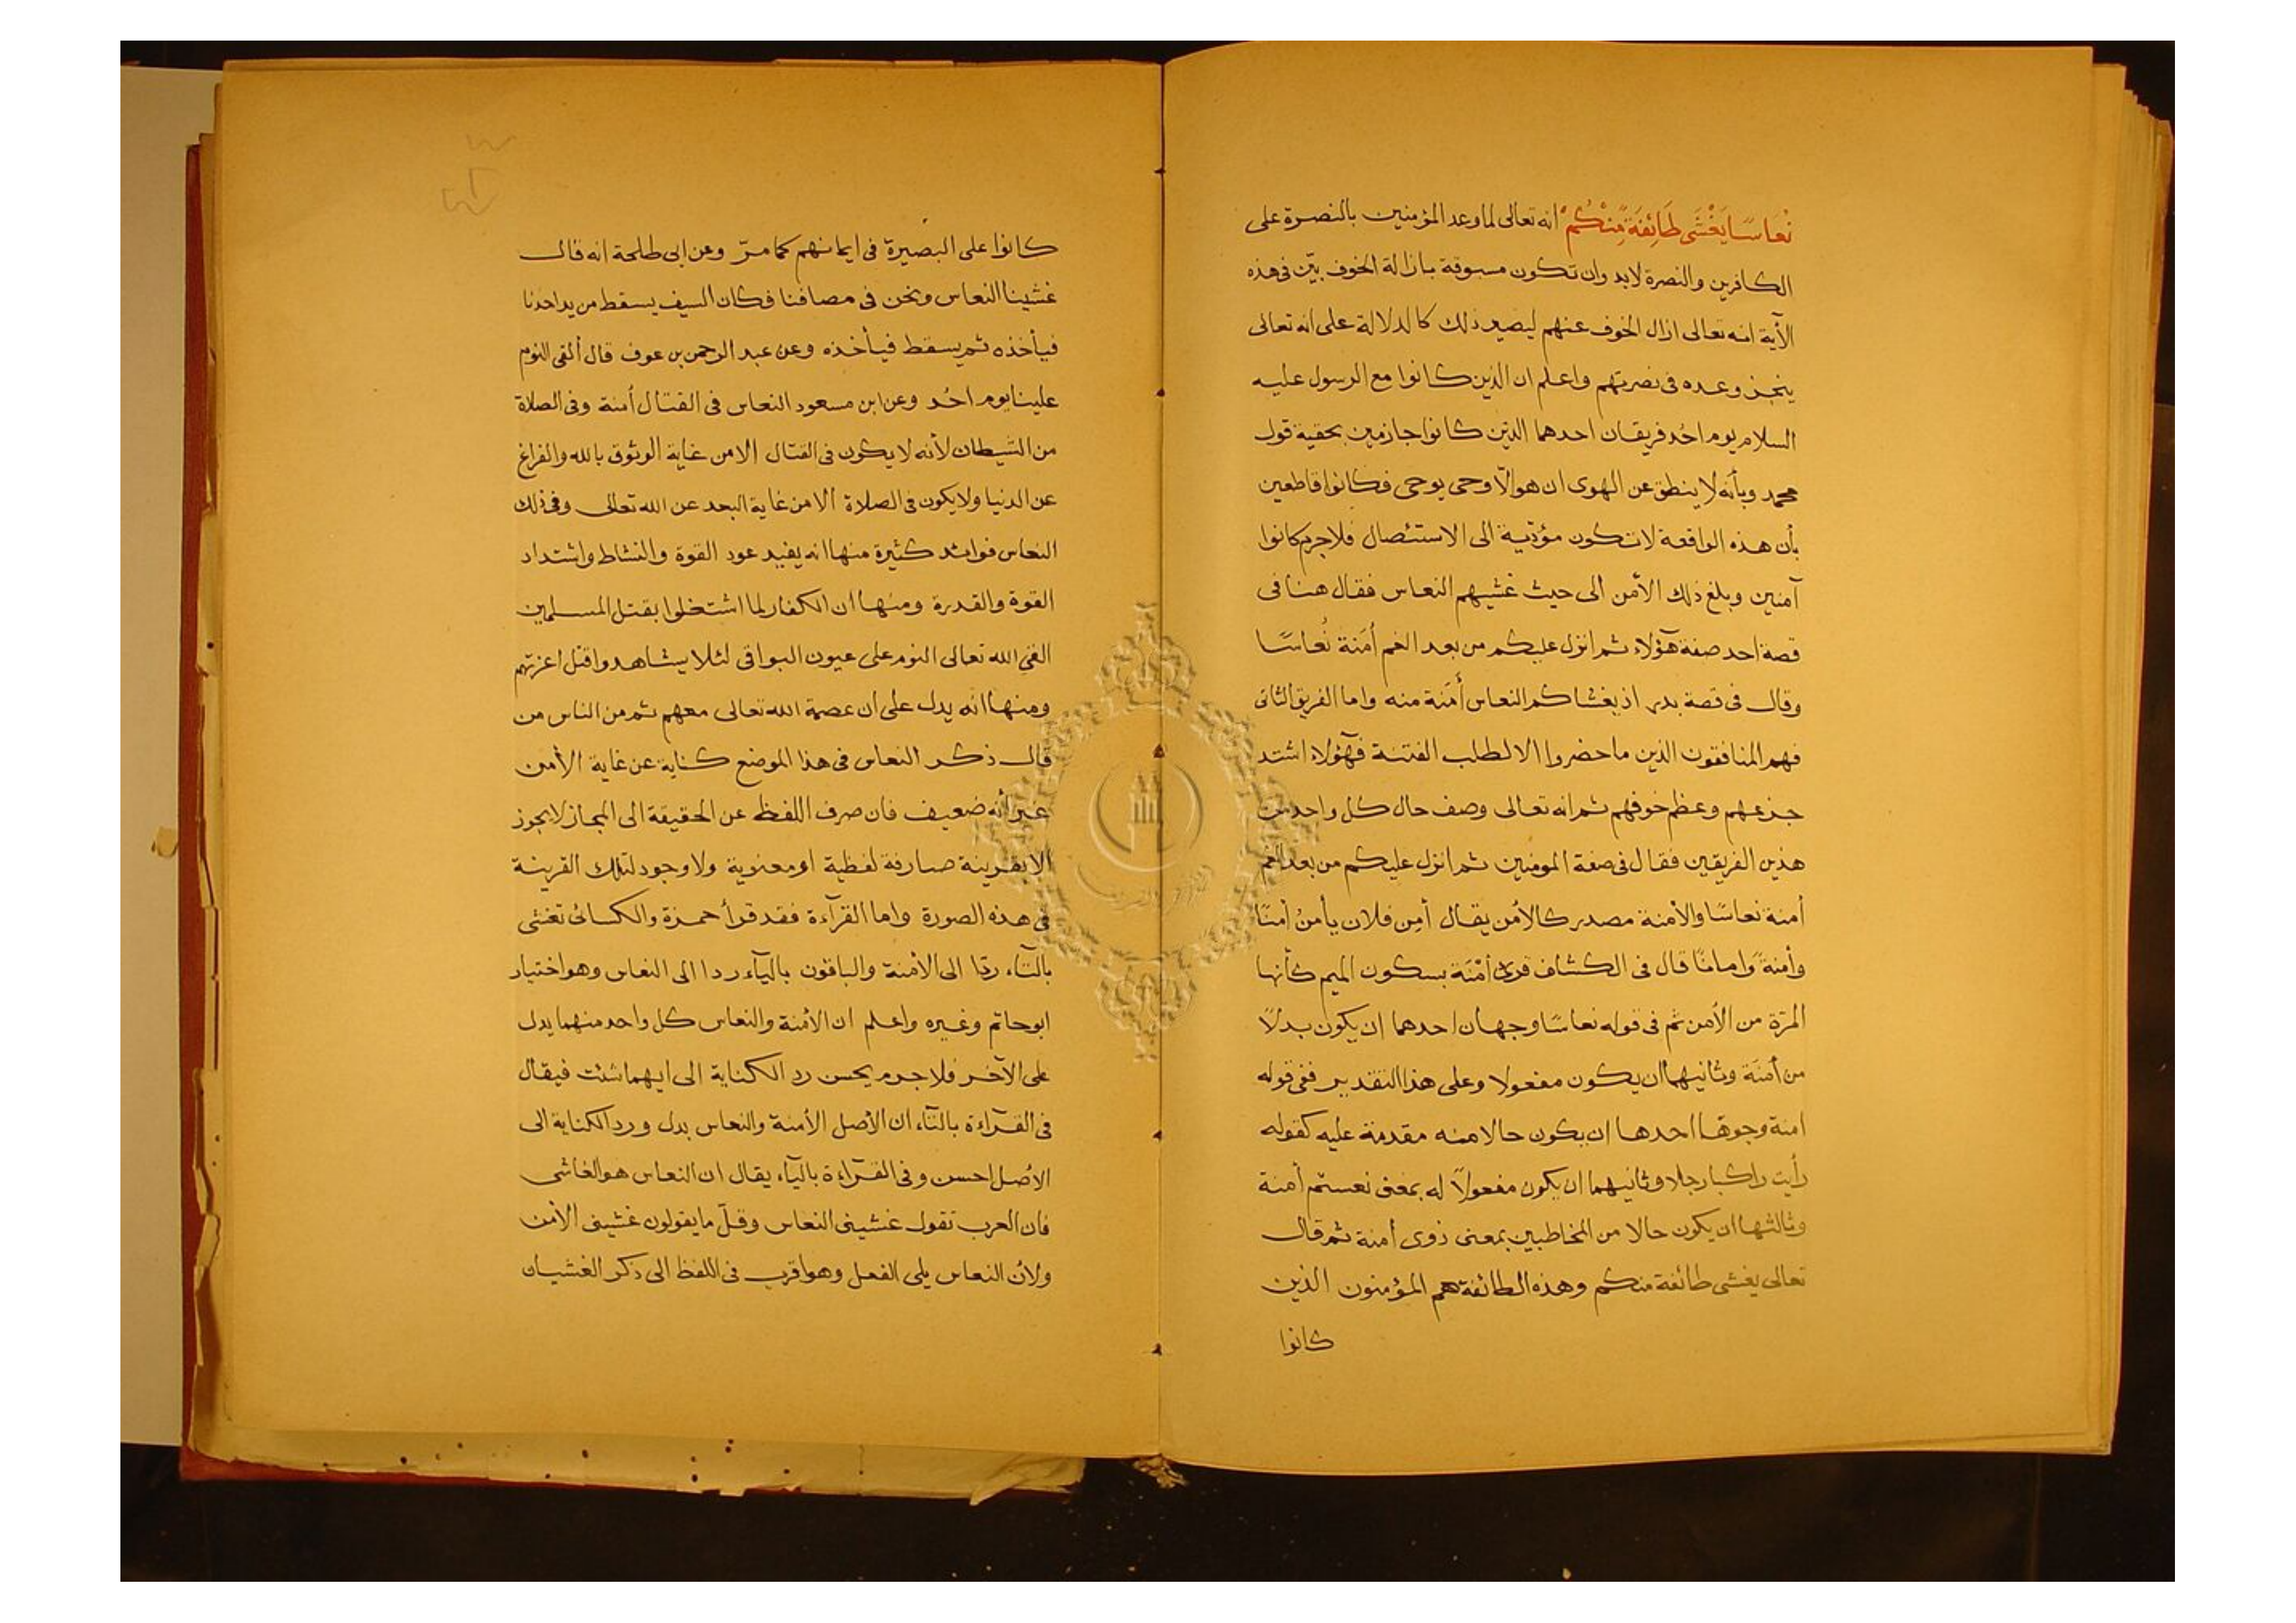 نُعَاسًا يَغْشَى طَائِفَةً مِّنْكُمْ انه تعالى لما وعد المؤمنين بالنصرة على
الكافرين والنصرة لابد وان تكون مسبوقة بازالة الخوف بيّن فى هذه
الآية انه تعالى ازال الخوف عنهم ليصير ذلك كالدلالة على انه تعالى
ينجز وعده فى نصرتهم واعلم ان الذين كانوا مع الرسول عليه
السلام يوم احُد فريقان احدهما الذين كانوا جازمين بحقية قول
محمد وبأنه لا ينطق عن الهوى ان هو الّا وحى يوحى فكانوا قاطعين
بأن هذه الواقعة لا تكون مؤدّية الى الاستئصال فلا جرم كانوا
آمنين وبلغ ذلك الأمن الى حيث غشيهم النعاس فقال هنا فى
قصة احد صفة هؤلاء ثم انزل عليكم من بعد الغم أمَنة نُعاسًا
وقال فى قصة بدر اذ يغشاكم النعاس أَمَنة منه واما الفريق الثانى
فهم المنافقون الذين ما حضروا الا لطلب الفتنة فهؤلاء اشتد
جزعهم وعظم خوفهم ثم انه تعالى وصف حال كل واحد من
هذين الفريقين فقال فى صفة المومنين ثم انزل عليكم من بعد الغم
أمنة نعاسًا والأمنة مصدر كالأمن يقال أمِن فلان يأمنُ أمنًا
وأمنةً وامانًا قال فى الكشاف قرئ أمْنَة بسكون الميم كأنها
المرّة من الأمن ثم فى قوله نعاسًا وجهان احدهما ان يكون بدلًا
من أمنَة وثانيهما ان يكون مفعولا وعلى هذا التقدير ففى قوله
امنة وجوها احدها ان يكون حالا منه مقدمة عليه كقوله
رأيت راكبا رجلا وثانيهما ان يكون مفعولاً له بمعنى نعستم أمنة
وثالثها ان يكون حالا من المخاطبين بمعنى ذوى أمنة ثم قال
تعالى يغشى طائفة منكم وهذه الطائفة هم المؤمنون الذين
كانوا
كانوا على البصيرة فى ايمانهم كما مرّ وعن ابى طلحة انه قال
غشينا النعاس ونحن فى مصافنا فكان السيف يسقط من يد احدنا
فيأخذه ثم يسقط فيأخذه وعن عبد الرحمن بن عوف قال ألقى النوم
علينا يوم احُد وعن ابن مسعود النعاس فى القتال أمنة وفى الصلاة
من الشيطان لأنه لا يكون فى القتال الا من غاية الوثوق بالله والفراغ
عن الدنيا ولا يكون فى الصلاة الا من غاية البعد عن الله تعالى وفى ذلك
النعاس فوائد كثيرة منها انه يفيد عود القوة والنشاط واشتداد
القوة والقدرة ومنها ان الكفار لما اشتغلوا بقتل المسلمين
القى الله تعالى النوم على عيون البواقى لئلا يشاهدوا قتل اعزتهم
ومنها انه يدل على ان عصمة الله تعالى معهم ثم من الناس من
قال ذكر النعاس فى هذا الموضع كناية عن غاية الأمن
غير أنه ضعيف فان صرف اللفظ عن الحقيقة الى المجاز لا يجوز
الا بقرينة صارفة لفظية او معنوية ولا وجود لتلك القرينة
فى هذه الصورة واما القرآءة فقد قرأ حمزة والكسائى تغشى
بالتآء ردّا الى الأمنة والباقون باليآء ردا الى النعاس وهو اختيار
ابو حاتم وغيره واعلم ان الأمنة والنعاس كل واحد منهما يدل
على الآخر فلا جرم يحسن رد الكناية الى ايهما شئت فيقال
فى القرآءة بالتآء ان الأصل الأمنة والنعاس بدل ورد الكناية الى
الأصل احسن وفى القرآءة باليآء يقال ان النعاس هو الغاشى
فان العرب تقول غشينى النعاس وقلّ ما يقولون غشينى الأمن
ولأن النعاس يلى الفعل وهو اقرب فى اللفظ الى ذكر الغشيان